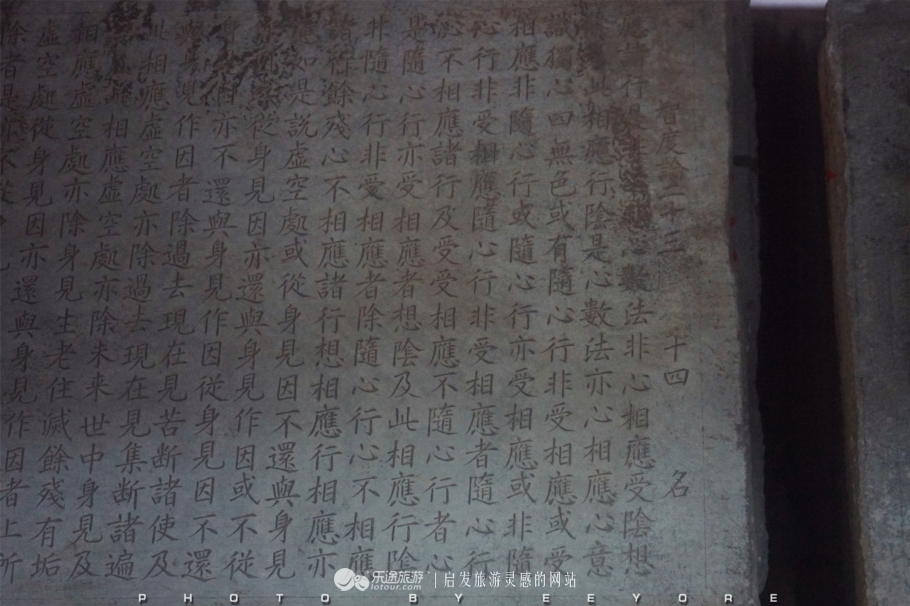 智度論二十三 十四 名
應諸行是非心數法非心相應受陰想
陰此相應行陰是心數法亦心相應心意
識獨心四無色或有隨心行非受相應或受
相應非隨心行或隨心行亦受相應或非隨
心行非受相應隨心行非受相應者隨心行
心不相應諸行及受受相應不隨心行者心
是隨心行亦受相應者想陰及此相應行陰
非隨心行非受相應者除隨心行心不相應
諸行餘殘心不相應諸行想相應行相應亦
應如是說虛空處或從身見因不還與身見
從身見因亦還與身見作因或不從
身見因亦不還與身見作因從身見因不還
與身見作因者除過去現在見苦斷諸使及
此相應虛空處亦除過去現在見集斷諸遍
使相應虛空處亦除未来世中身見及
相應虛空處亦除身見生老住滅餘殘有垢
虛空處從身見因亦還與身見作因者上所
除者是
乐途旅游
lotour.com
启发旅游灵感的网站
PHOTO BY EEYORE